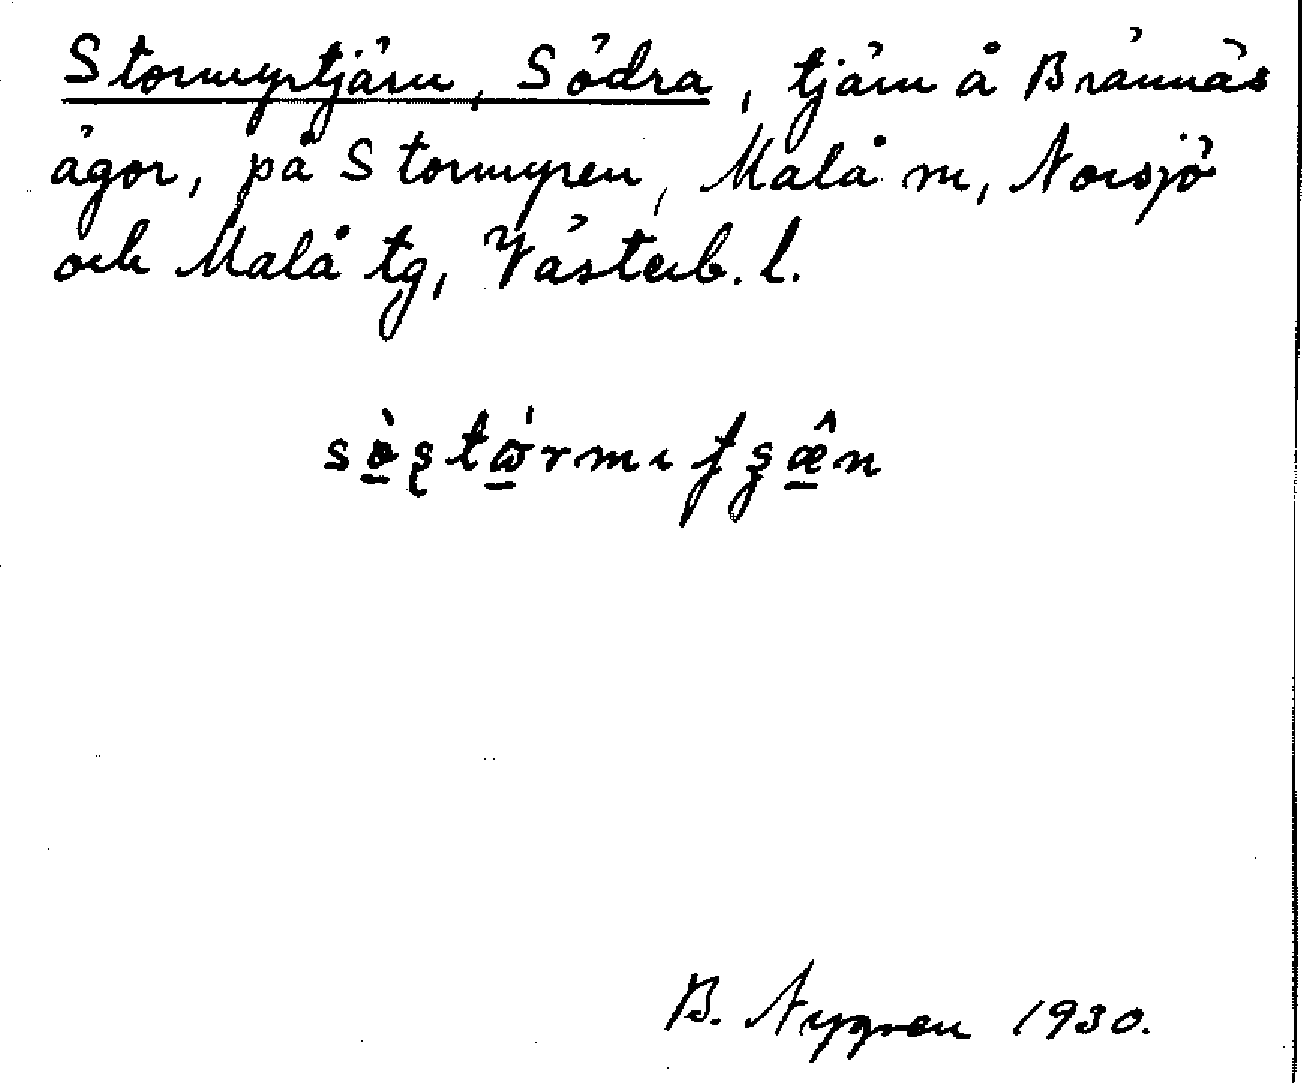 Stormyrtjärn, Södra, tjärn å Brännäs
ägor, på Stormyren, Malå m, Norsjö
och Malå tg, Västerb. l.
B. Nygren 1930.